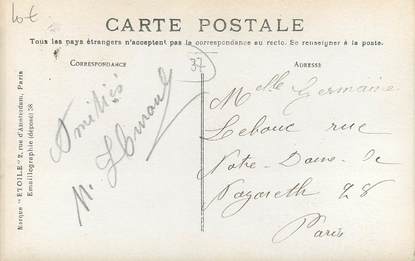 Lot
CARTE POSTALE
Tous les pays étrangers n'acceptent pas la correspondance au recto. Se renseigner à la poste.
CORRESPONDANCE
ADRESSE
37
Marque "ETOILE" 2, rue d'Amsterdam, Paris
Emaillographie (déposé) 38
Amitiés
Melle Germaine
Lebouc rue
Notre-Dame-de
Nazareth 28
Paris